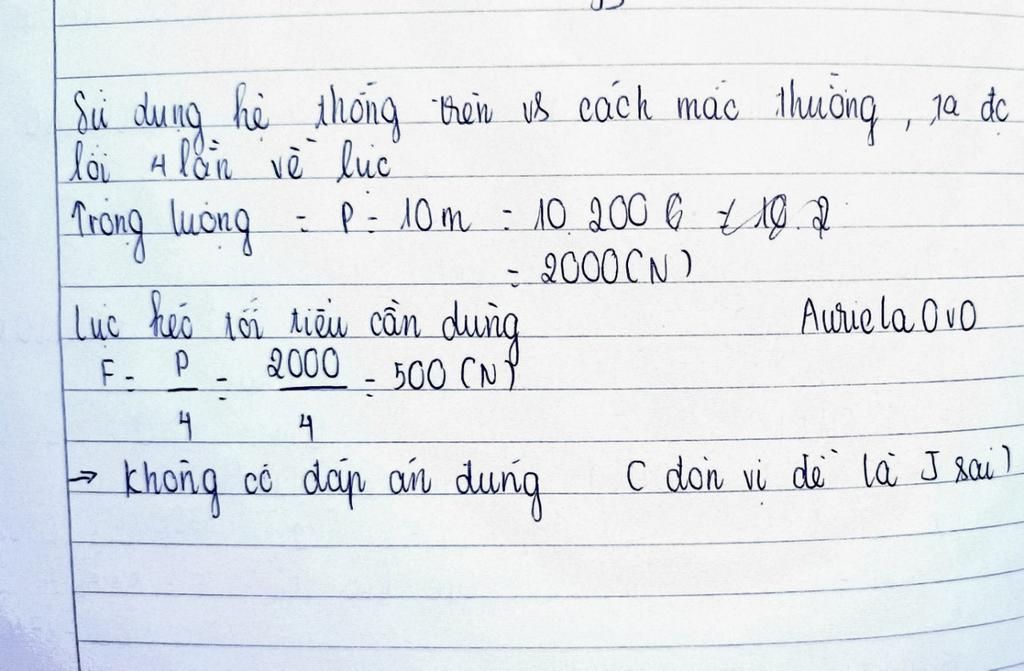 Sử dụng hệ thống trên vs cách mắc thường, ta đc
lợi 4 lần về lực
Trọng lượng = P = 10m = 10.200
= 2000 (N)
Lực kéo tối tiểu cần dùng
Auriela OvO
F = P/4 = 2000/4 = 500 (N)
→ không có đáp án đúng (đơn vị đề là J sai)